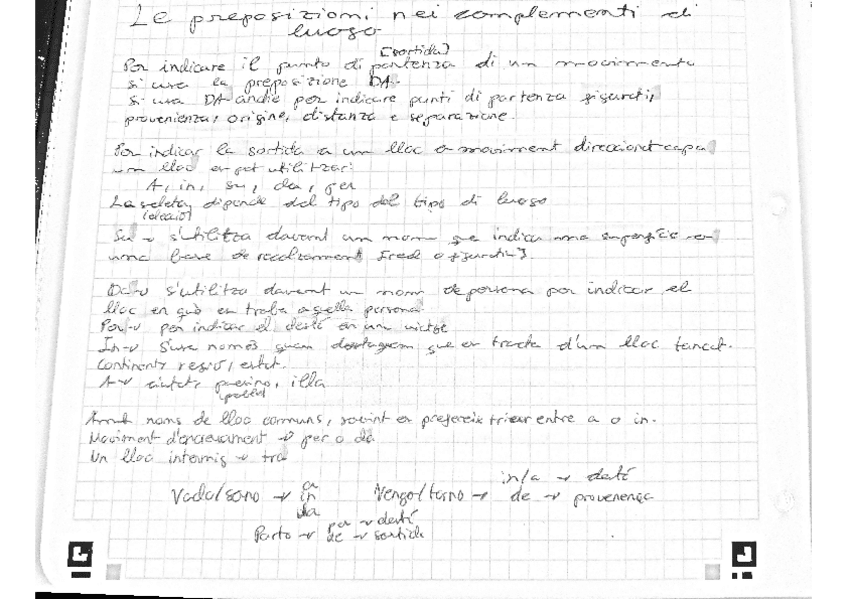 Le preposizioni nei complementi di
luogo
[sortida]
Per indicare il punto di partenza di un movimento
si usa la preposizione DA.
Si usa DA anche per indicare punti di partenza figurati,
provenienza, origine, distanza e separazione.
Per indicar la sortida a un lloc o moviment direccionat cap a
un lloc es pot utilitzar:
A, in, su, da, per
La scelta dipende dal tipo del tipo di luogo
(elecció)
Su → s'utilitza davant un nom que indica una superfície o
una base de recolzament [real o figurativa].
Da → s'utilitza davant un nom de persona per indicar el
lloc en què es troba aquella persona.
Per → per indicar el destí en un viatge
In → S'usa només quan destaquem que es tracta d'un lloc tancat.
Continent, regió, estat.
A → ciutat, illa
(poble)
noms de lloc comuns, sovint es prefereix triar entre a o in.
Moviment d'encreuament → per o da
Un lloc intermig → tra
Vado/sono → a
in
da
Vengo/torno → in/a → destí
de → provenença
Parto → per → destí
de → sortida